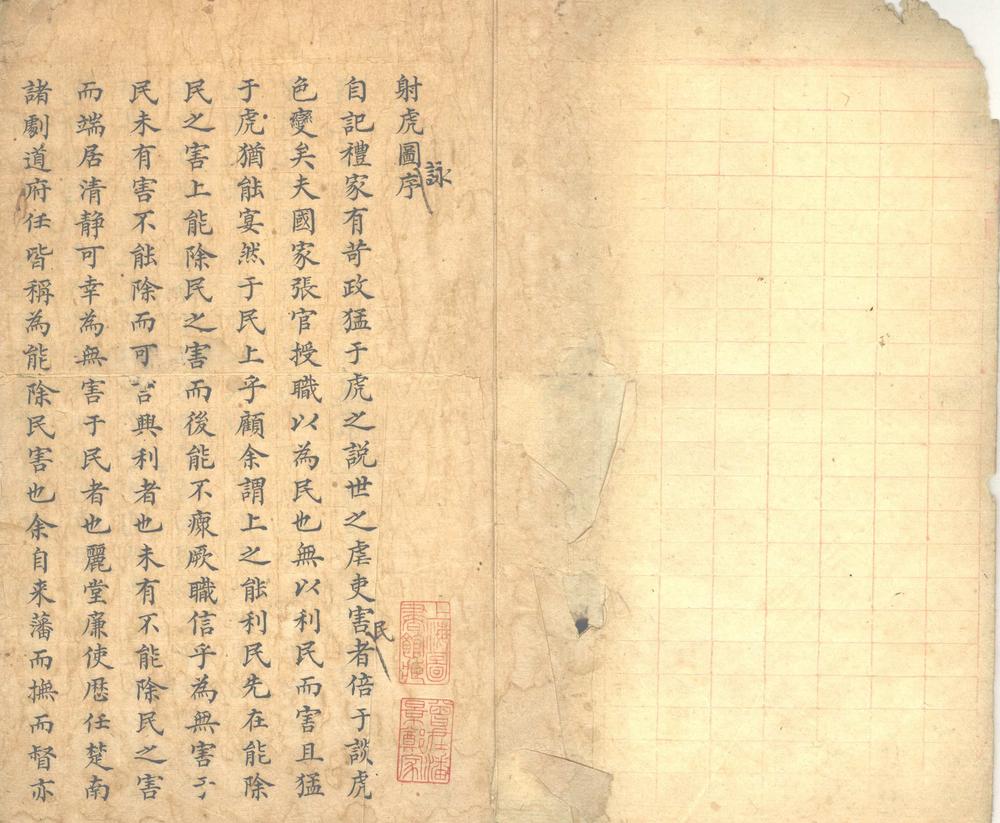 射虎圖序詠
自記禮家有苛政猛于虎之説世之虐吏害民者倍于談虎
色變矣夫國家張官授職以為民也無以利民而害且猛
于虎猶能宴然于民上乎顧余謂上之能利民先在能除
民之害上能除民之害而後能不瘝厥職信乎為無害于
民未有害不能除而可言興利者也未有不能除民之害
而端居清靜可幸為無害于民者也麗堂廉使歷任楚南
諸劇道府任皆稱為能除民害也余自来藩而撫而督亦
上海圖書館藏
曾在潘景鄭家